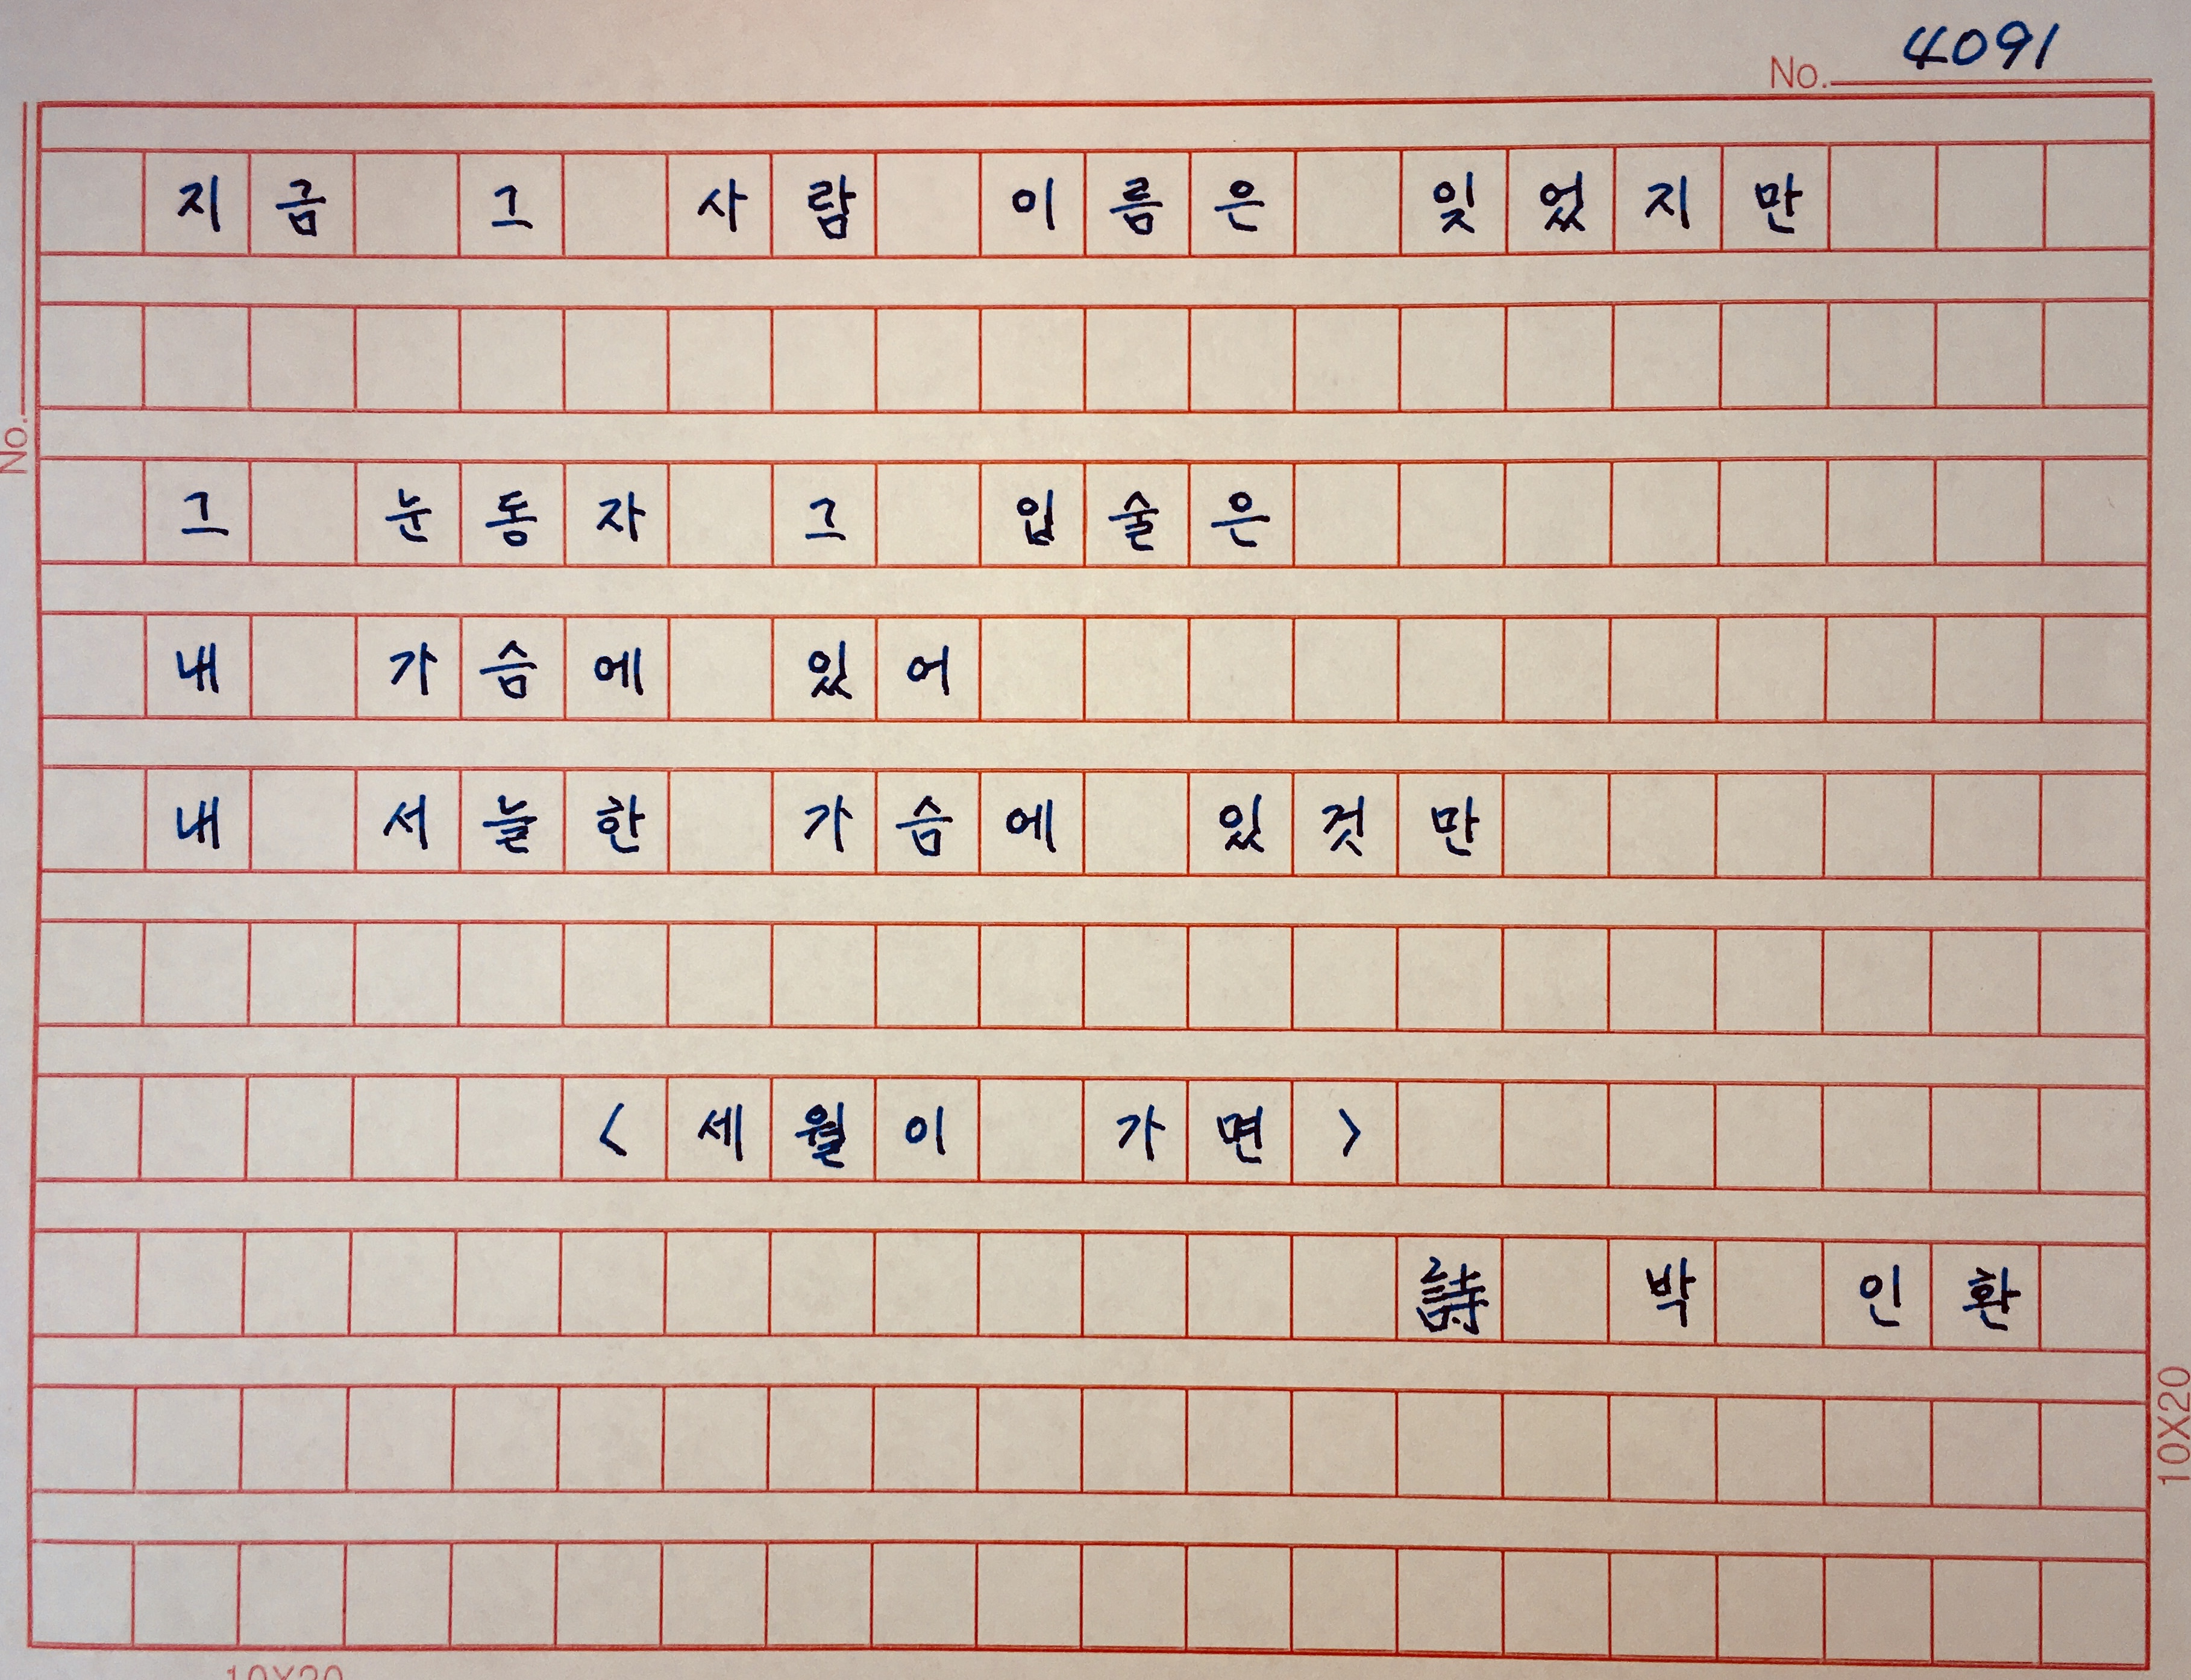 No. 4091
지금 그 사람 이름은 잊었지만
그 눈동자 그 입술은
내 가슴에 있어
내 서늘한 가슴에 있것만
<세월이 가면>
詩 박 인환
No.
10X20
10X20